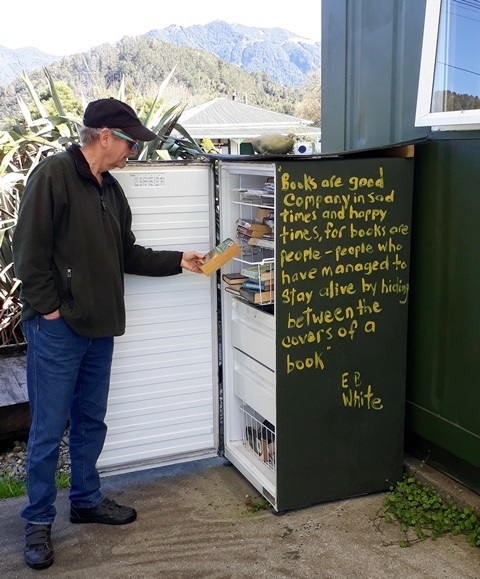 "Books are good
Company, in sad
times and happy
times, for books are
people - people who
have managed to
Stay alive by hiding
between the
covers of a
book"
E B
White